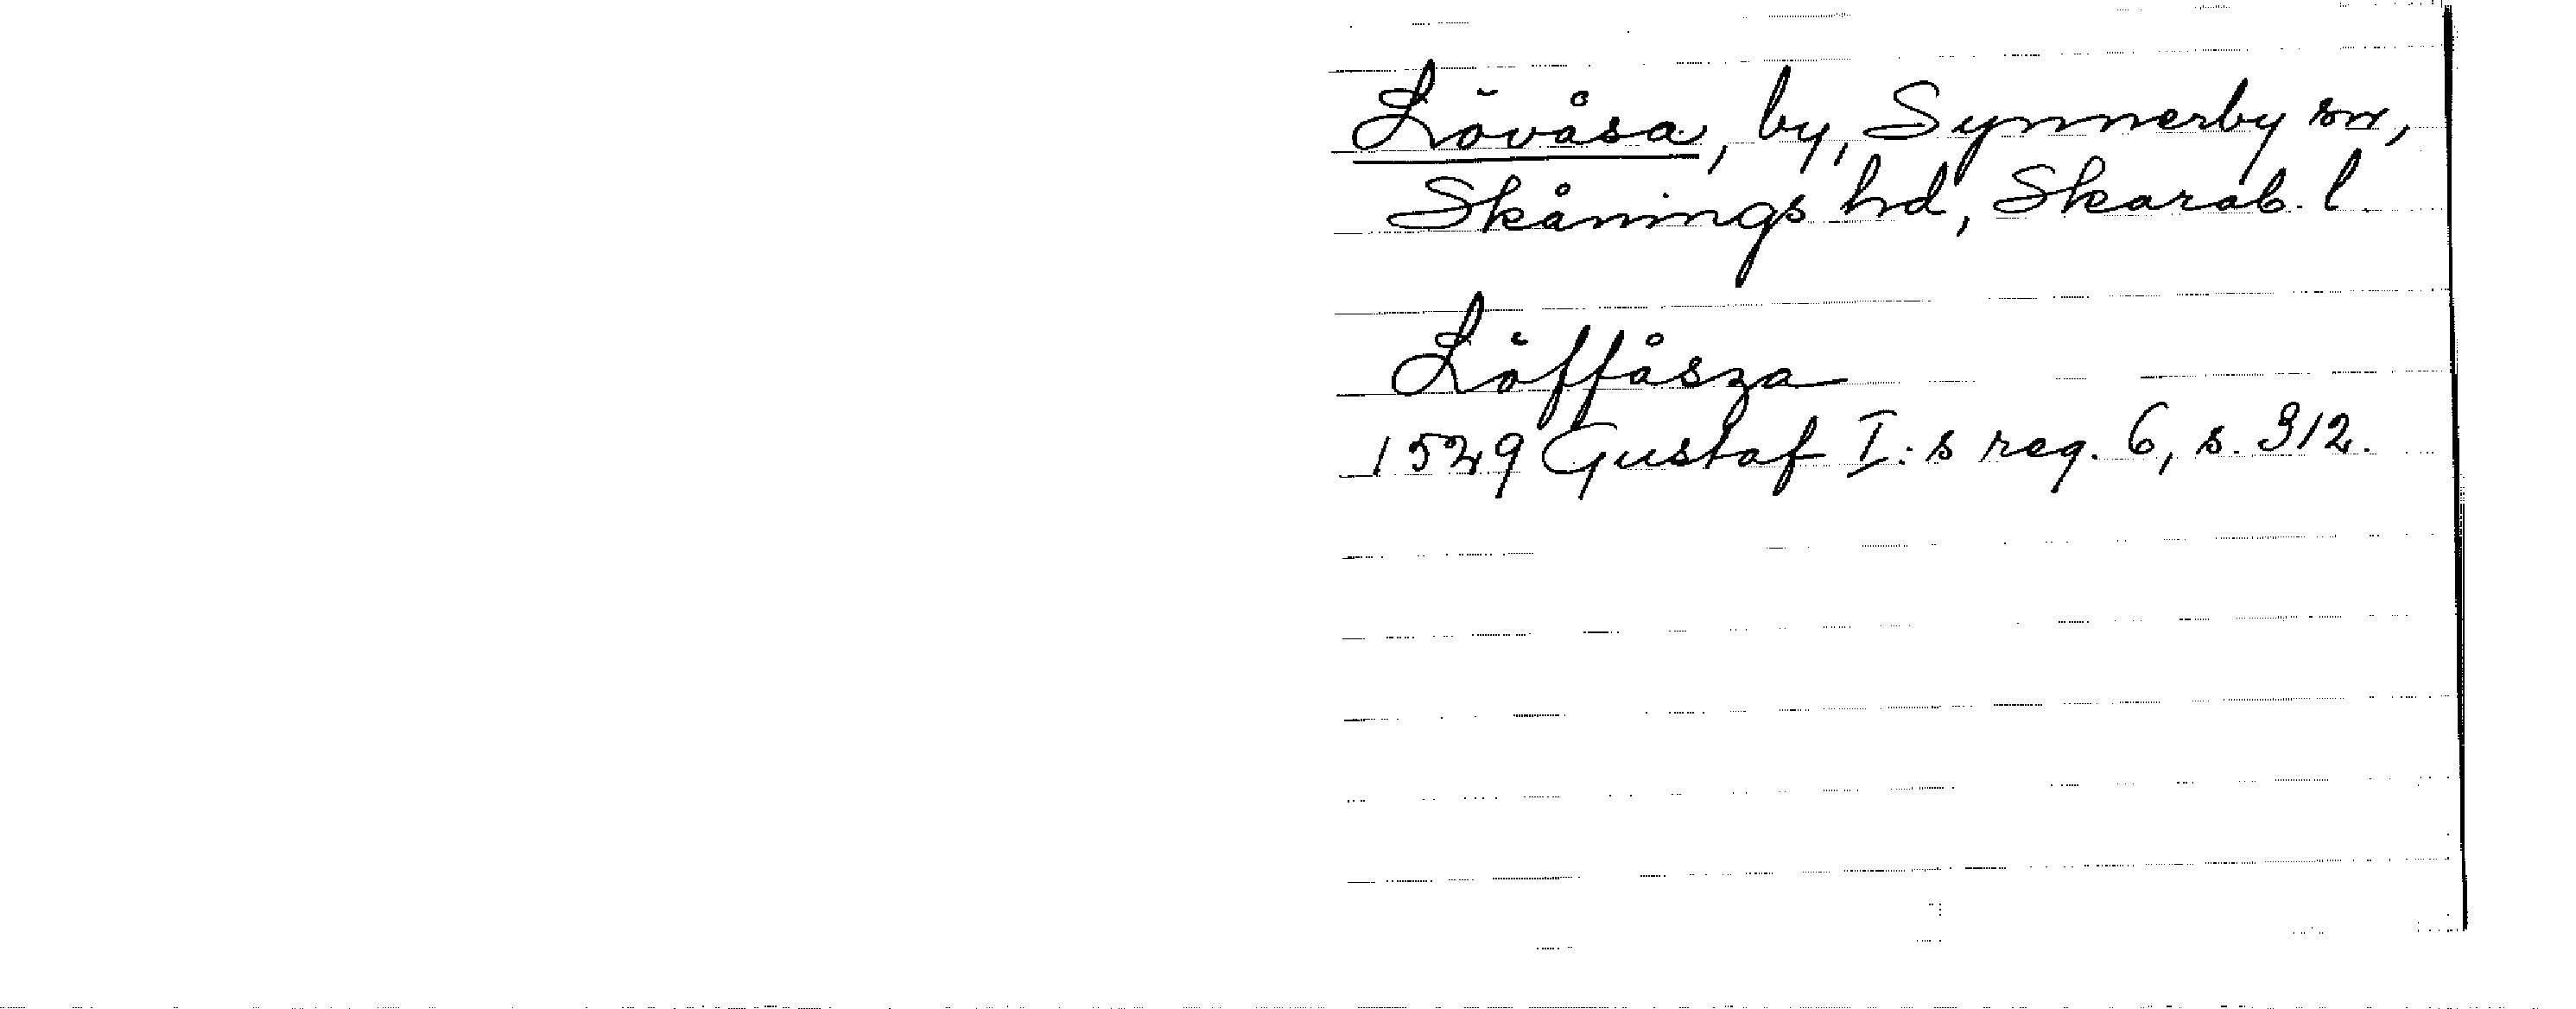 Lövåsa, by, Synnerby sn,
Skånings hd, Skarab. l.
Löffåsza
1529 Gustaf I:s reg. 6, s. 312.